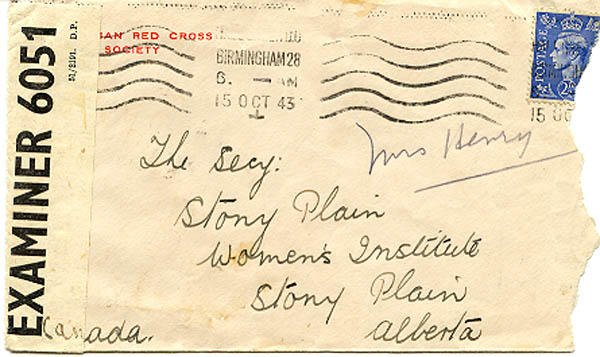 EXAMINER 6051
51/2191. D.P.
AN RED CROSS
SOCIETY
BIRMINGHAM 28
8. — AM
15 OCT 43
POSTAGE
15 OC
Mrs Henry
The Secy:
Stony Plain
Women's Institute
Stony Plain
Alberta
Canada.